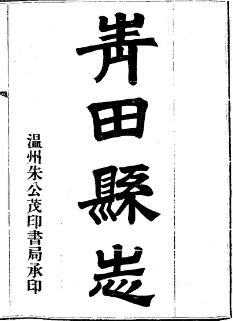 青田縣志
温州朱公茂印書局承印